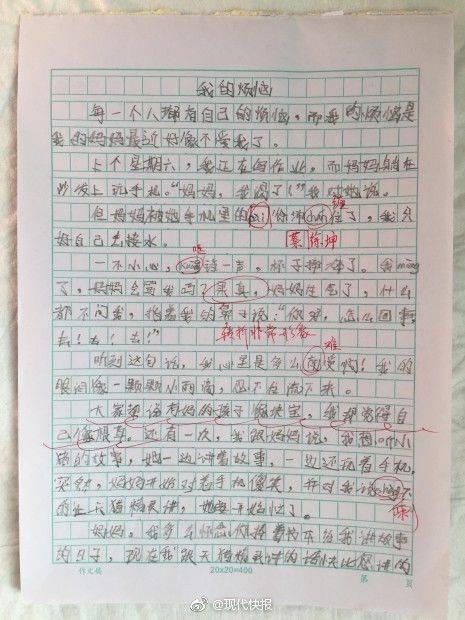 我的烦恼
每一个人都有自己的烦恼，而我的烦恼是
我的妈妈最近好像不爱我了。
上个星期六，我正在写作业，而妈妈躺在
沙发上玩手机。“妈妈，我渴了！”我对她说。
缠
但妈妈被她手机里的住了，我只
好自己去接水。
坤
一不小心，一声，杯子摔碎了。我
了，妈妈会骂我吗？果真，妈妈生气了，什么
都不问我，指着我的鼻子说：“你呀，怎么回事，
去！去！去！”
转折非常形象
难
听到这句话，我心里是多么受啊！我的
眼泪像一颗颗小雨滴，忍不住流下来。
大家都说有妈的孩子像块宝，我却觉得自
己像根草。还有一次，我跟妈妈说，我想听小
猪的故事，她一边讲着故事，一边还玩着手机，
突然，妈妈开始对着手机傻笑，并对我说
的让天猫精灵讲，她要开始忙了。
妈妈，我多么怀念你捧着书本给我讲故事
的日子，现在我跟天猫精灵讲的话快比您讲的
作文稿 20×20=400 第 页
@现代快报